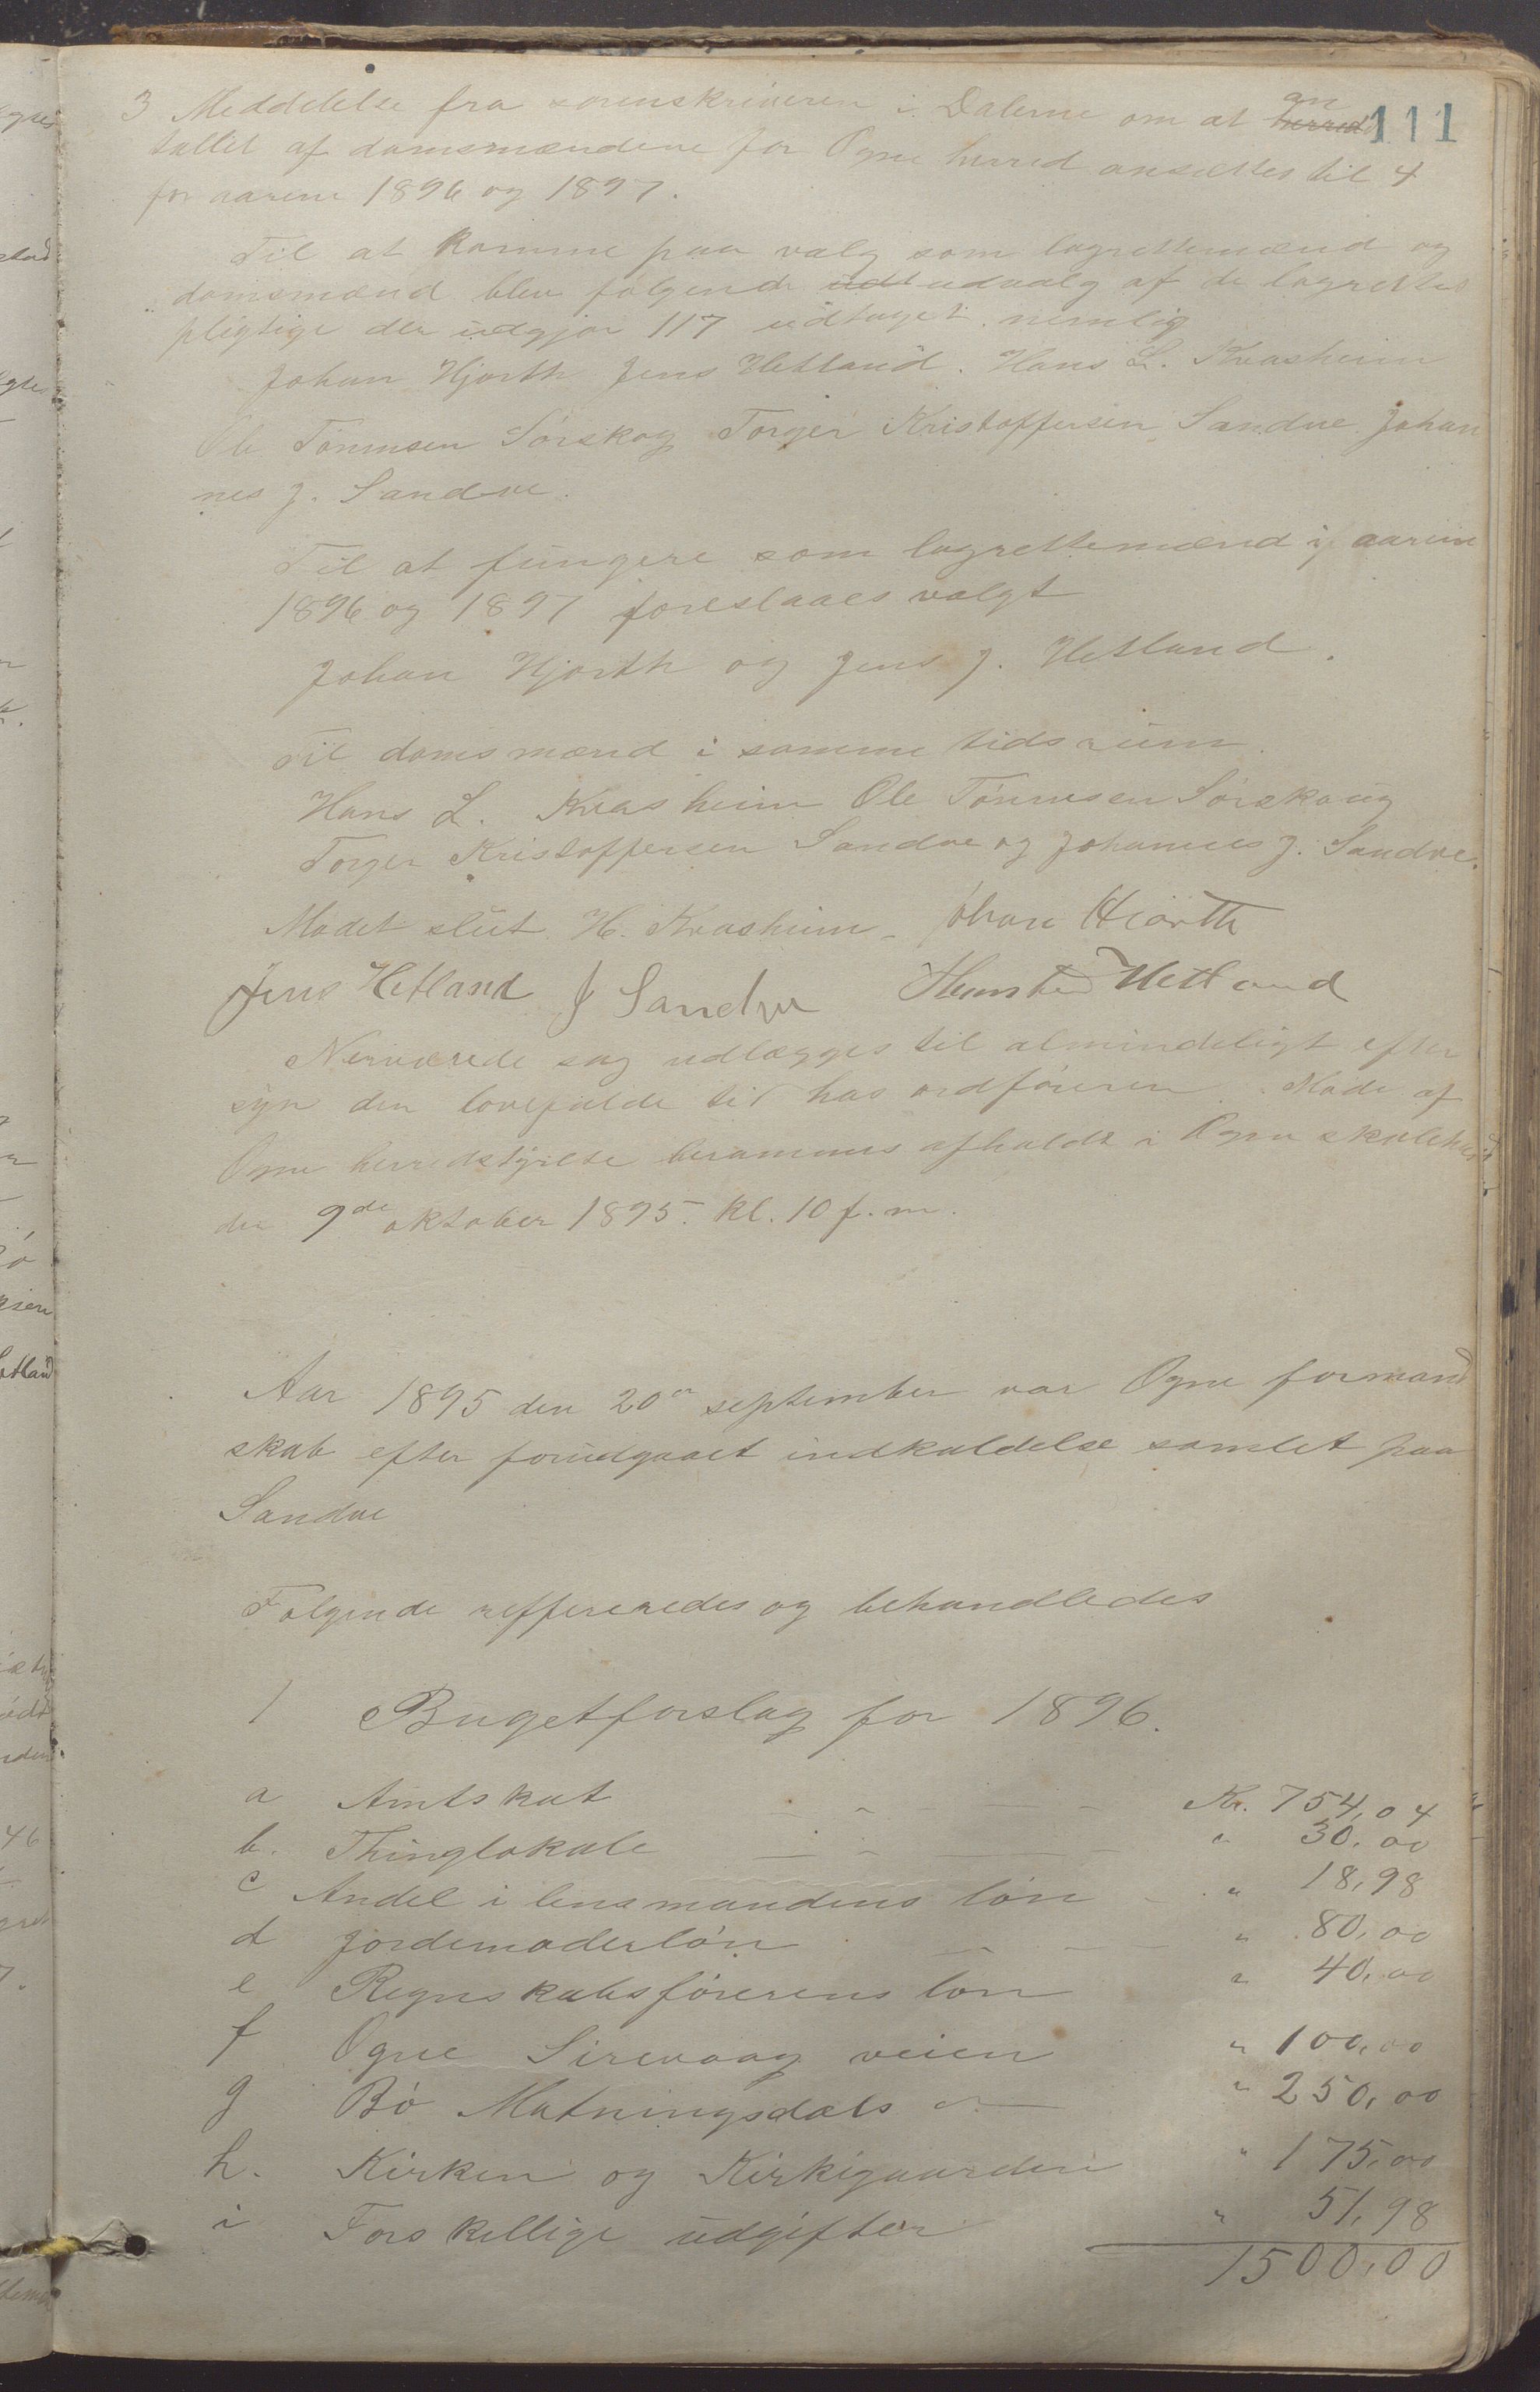 111
3 Meddelelse fra sorenskriveren i Dalerne om at an
tallet af domsmændene for Ogne herred ansættes til 4
for aarene 1896 og 1897.
Til at komme paa valg som lagrettemænd og
domsmænd blev følgende udt udvalg af de lagrettes
pligtige der udgjør 117 udtaget nemlig
Johan Hjorth Jens Hetland. Hans L. Kvasheim
Ole Tønnesen Sørskog Torger Kristoffersen Sandve Johan
nes J. Sandve.
Til at fungere som lagrettemænd i aarene
1896 og 1897 foreslaaes valgt
Johan Hjorth og Jens J. Hetland.
Til domsmænd i samme tidsrum.
Hans L. Kvasheim Ole Tønnesen Sørskaug
Torger Kristoffersen Sandve og Johannes J. Sandve.
Mødet slut. H. Kvasheim - Johan Hiorth
Jens Hetland J Sandve Hetland
Nerværede sag udlægges til almindeligt efter
syn den lovefulde tid hos ordføreren. Møde af
Ogne herredstyrelse berammes afholdt i Ogne skolehus
den 9de oktober 1895. kl. 10 f. m.
Aar 1895 den 20de september var Ogne formand
skab efter forudgaaet indkaldelse samlet paa
Sandve
Følgende reffereredes og behandledes
1 Bugetforslag for 1896.
a Amtskat Kr. 754,04
b. Thinglokale " 30,00
c Andel i lensmandens løn " 18,98
d Jordemoderløn " 80,00
e Regnskabsførerens løn " 40,00
f Ogne Sirevaag veien " 100,00
g Bö Matningsdals " 250,00
h. Kirken og Kirkegaarden " 175,00
i Forskellige udgifter " 51,98
1500,00